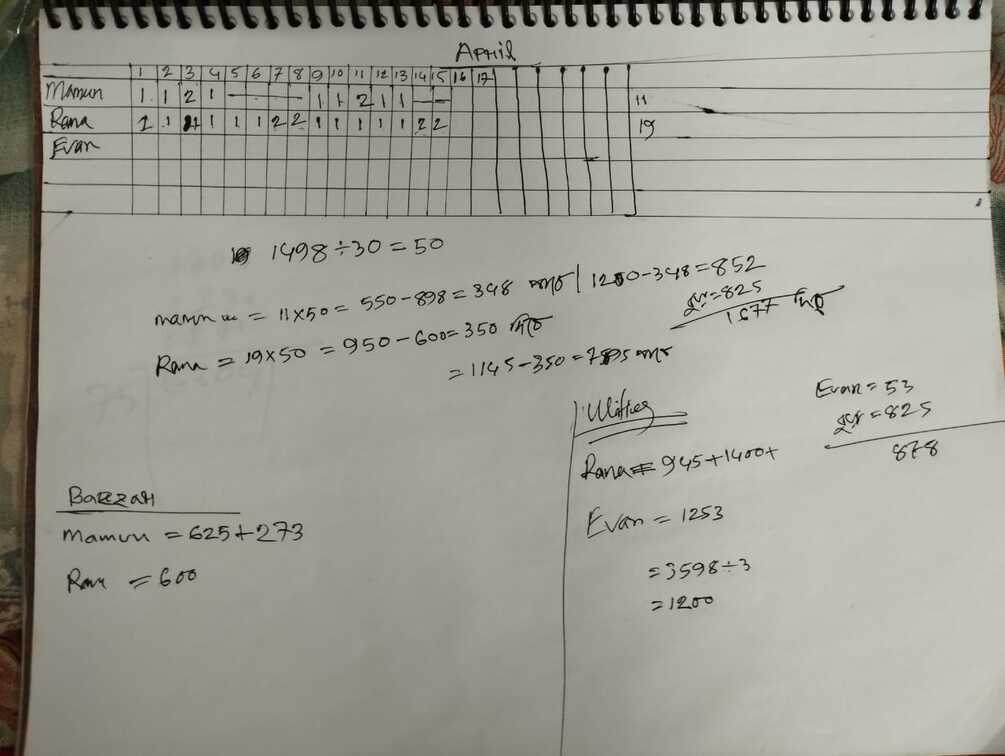 April
1 2 3 4 5 6 7 8 9 10 11 12 13 14 15 16 17
Mamun 1 1 2 1 — 1 1 2 1 1 — 11
Rana 1 1 1 1 1 2 2 1 1 1 1 1 2 2 19
Evan
1498÷30=50
mamun = 11×50 = 550-898 = 348 পাবে | 1200-348=852
=825
1677 দিবে
Rana = 19×50 = 950-600=350 দিবে
=1145-350=795 পাবে
Utilities
Evan = 53
=825
878
Rana = 945+1400+
Evan = 1253
=3598÷3
=1200
Bazzar
Mamun = 625+273
Rana = 600